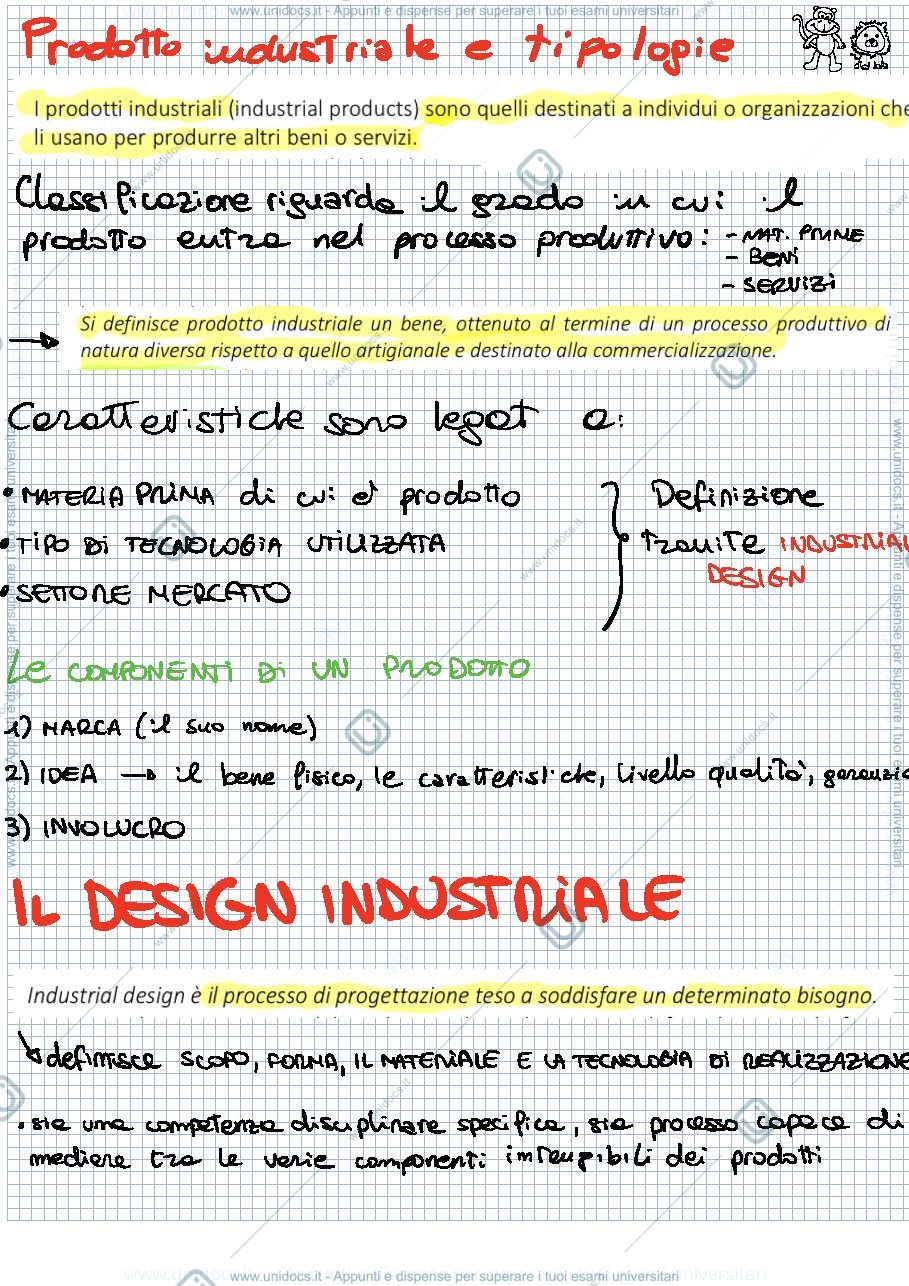 www.unidocs.it - Appunti e dispense per superare i tuoi esami universitari
Prodotto industriale e tipologie
I prodotti industriali (industrial products) sono quelli destinati a individui o organizzazioni che
li usano per produrre altri beni o servizi.
Classificazione riguarda il grado in cui il
prodotto entra nel processo produttivo: - MAT. PRIME
- BENI
- SERVIZI
Si definisce prodotto industriale un bene, ottenuto al termine di un processo produttivo di
natura diversa rispetto a quello artigianale e destinato alla commercializzazione.
Caratteristiche sono legat a:
• MATERIA PRIMA di cui è prodotto
• TIPO DI TECNOLOGIA UTILIZZATA
• SETTORE MERCATO
Definizione
tramite INDUSTRIAL
DESIGN
Le COMPONENTI DI UN PRODOTTO
1) MARCA (il suo nome)
2) IDEA → il bene fisico, le caratteristiche, livello qualità, garanzia
3) INVOLUCRO
IL DESIGN INDUSTRIALE
Industrial design è il processo di progettazione teso a soddisfare un determinato bisogno.
definisce SCOPO, FORMA, IL MATERIALE E LA TECNOLOGIA DI REALIZZAZIONE
• sia una competenza disciplinare specifica, sia processo capace di
mediare tra le varie componenti dei prodotti
www.unidocs.it - Appunti e dispense per superare i tuoi esami universitari